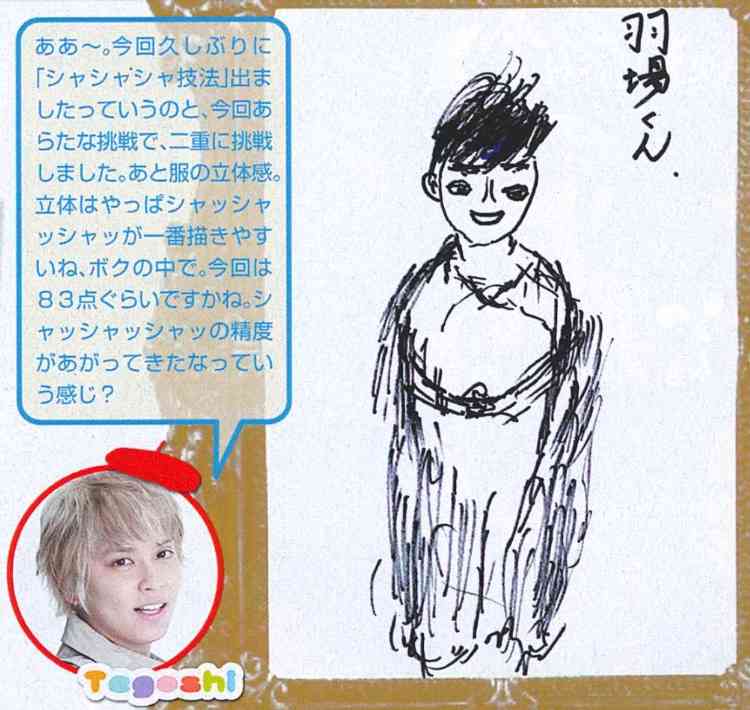 ああ〜。今回久しぶりに
「シャシャシャ技法」出ま
したっていうのと、今回あ
らたな挑戦で、二重に挑戦
しました。あと服の立体感。
立体はやっぱシャッシャ
ッシャッが一番描きやす
いね、ボクの中で。今回は
８３点ぐらいですかね。シ
ャッシャッシャッの精度
があがってきたなってい
う感じ？
Tegoshi
羽場くん.